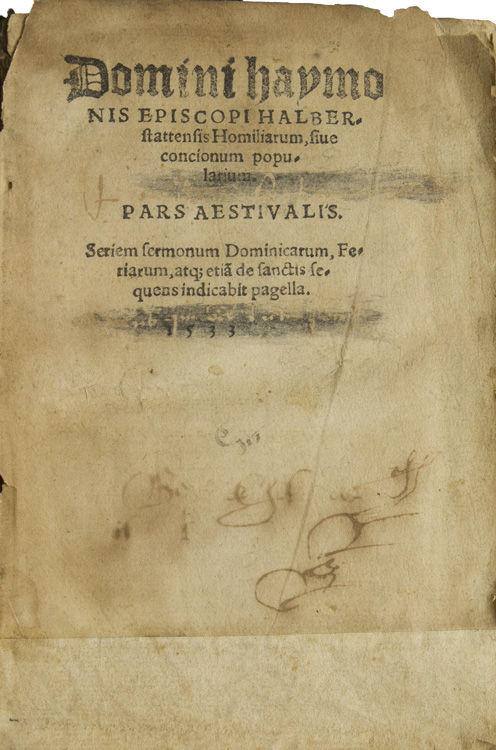 Domini haymo
NIS EPISCOPI HALBER-
ſtattenſis Homiliarum, ſiue
concionum popu-
larium.
PARS AESTIVALIS.
Seriem ſermonum Dominicarum, Fe-
riarum, atq; etiã de ſanctis ſe-
quens indicabit pagella.
1533